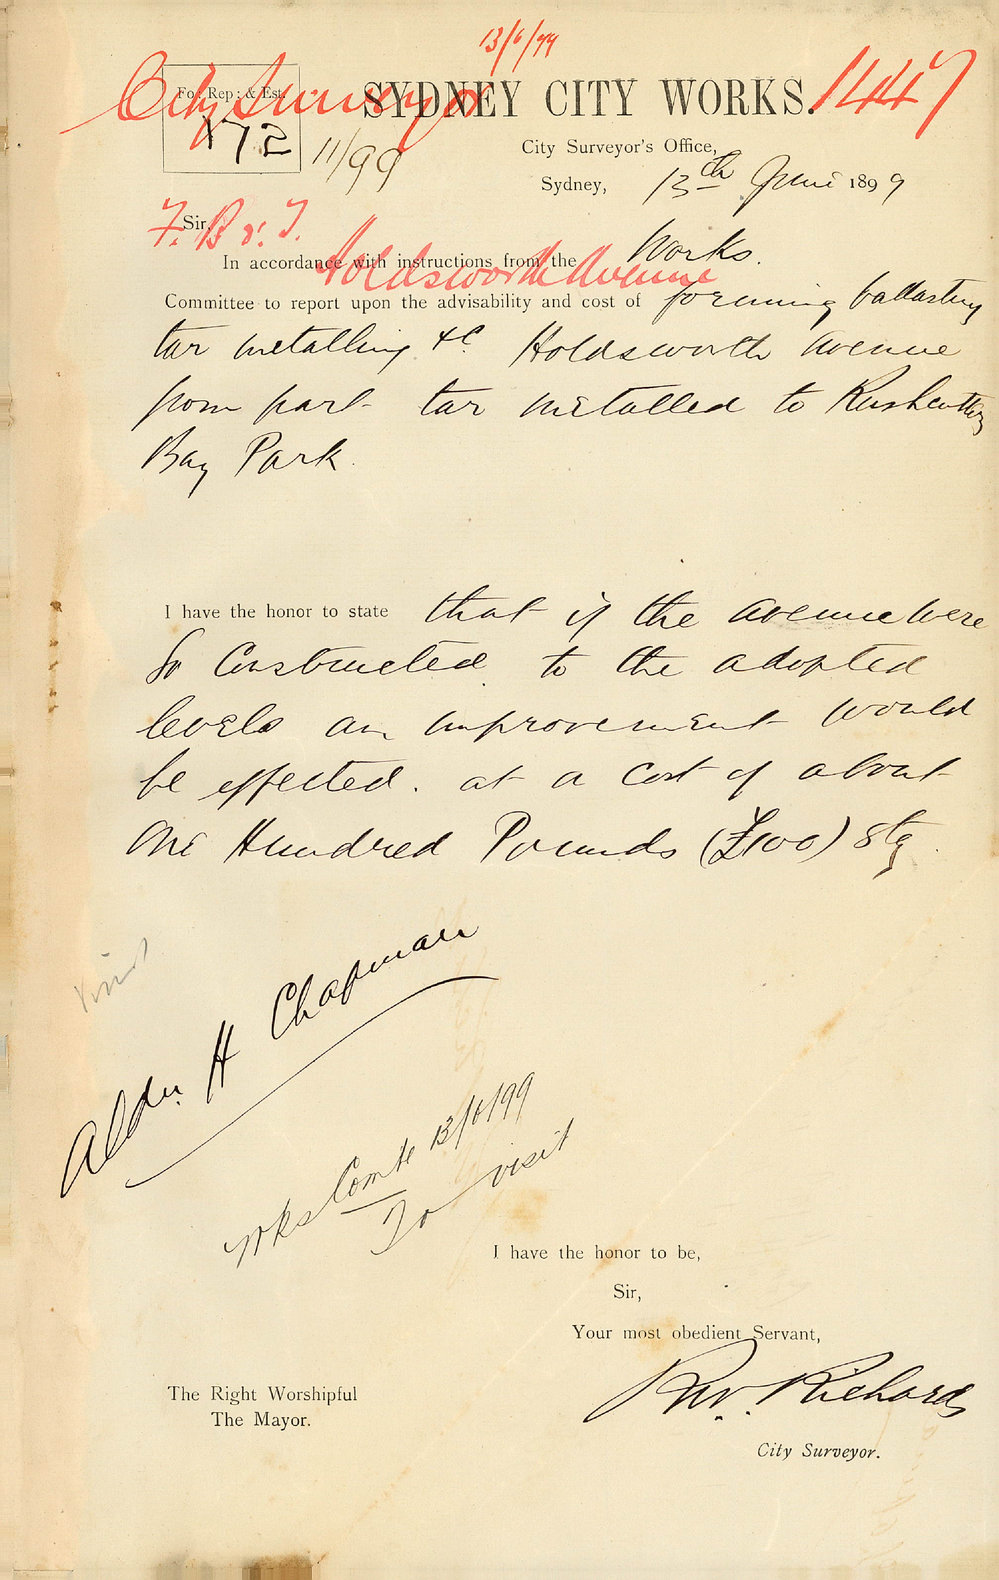 13/6/99
City Surveyor
1447
Fo: Rep: & Est.
172
11/99
SYDNEY CITY WORKS.
City Surveyor's Office,
Sydney, 13th June 1899
F. B & T.
Sir,
Holdsworth Avenue
In accordance with instructions from the Works.
Committee to report upon the advisability and cost of forming ballasting
tar metalling &c Holdsworth Avenue
from part tar metalled to Rushcutters
Bay Park.
I have the honor to state that if the avenue were
so constructed to the adopted
levels an improvement would
be effected. at a cost of about
One Hundred Pounds (£100) Stg.
Aldn. H Chapman
Wks Comte 13/6/99
To visit
I have the honor to be,
Sir,
Your most obedient Servant,
R.W. Richards
City Surveyor.
The Right Worshipful
The Mayor.